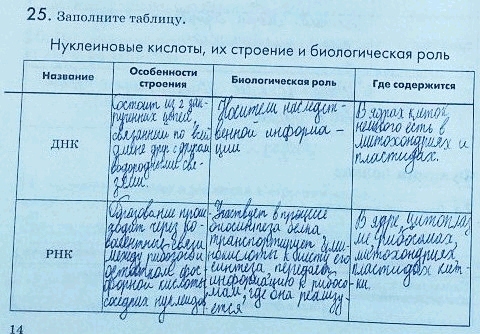 25. Заполните таблицу.
Нуклеиновые кислоты, их строение и биологическая роль
Название
Особенности
строения
Биологическая роль
Где содержится
ДНК
Состоит из 2 зак-
рученных цепей,
связанных по всей
длине друг с другом
водородными свя-
зями.
Носители наследст-
венной информа-
ции
В ядрах клеток,
немного есть в
митохондриях и
пластидах.
РНК
Образование проис-
ходит через ко-
валентные связи
между рибозой и
остатком фос-
форной кислоты
соседних нуклеидов
Участвует в процессе
биосинтеза белка
транспортирует амин-
кислоты к месту его
синтеза, передаёт
информацию к рибосо-
мам, где она реализу-
ется
В ядре, цитоплаз-
ме рибосомах,
митохондриях,
пластидах клет-
ки.
14